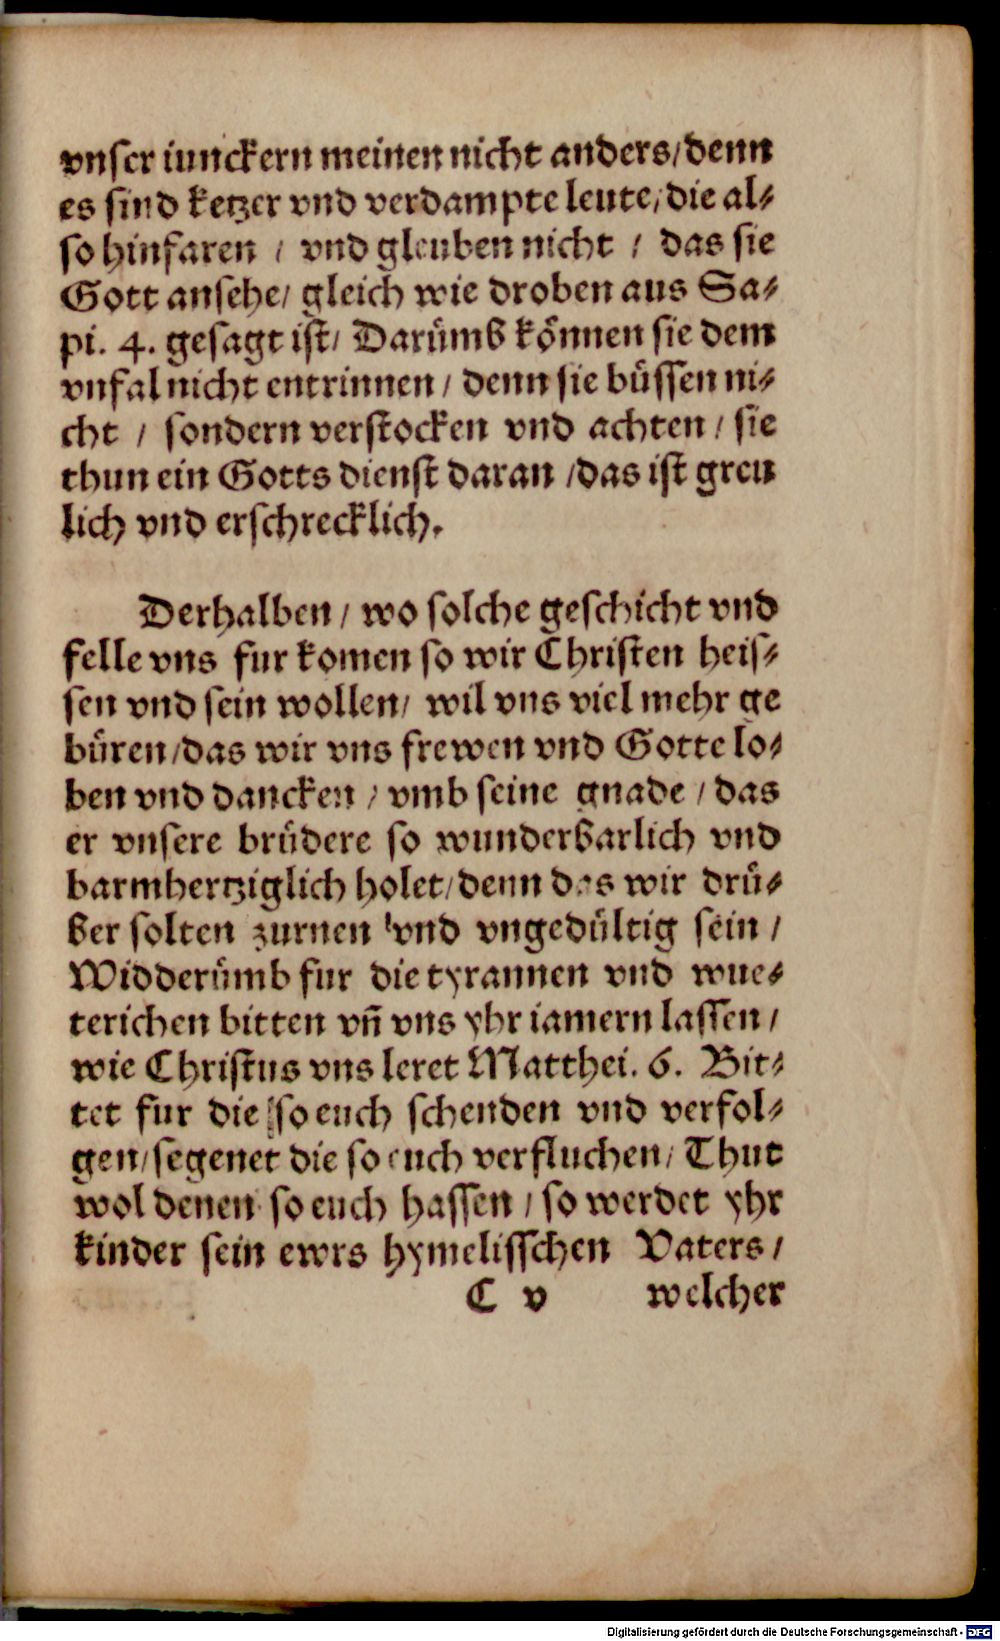 vnser iunckern meinen nicht anders/denn
es sind ketzer vnd verdampte leute/die al-
so hinfaren / vnd gleuben nicht / das sie
Gott ansehe/ gleich wie droben aus Sa-
pi. 4. gesagt ist/ Darümb können sie dem
vnfal nicht entrinnen / denn sie büssen ni-
cht / sondern verstocken vnd achten / sie
thun ein Gotts dienst daran /das ist greu
lich vnd erschrecklich.
Derhalben / wo solche geschicht vnd
felle vns fur komen so wir Christen heis-
sen vnd sein wollen/ wil vns viel mehr ge
büren/das wir vns frewen vnd Gotte lo-
ben vnd dancken / vmb seine gnade / das
er vnsere brüdere so wunderbarlich vnd
barmhertziglich holet/denn das wir drü-
ber solten zurnen vnd vngedültig sein /
Widderümb fur die tyrannen vnd wue-
terichen bitten vñ vns yhr iamern lassen /
wie Christus vns leret Matthei. 6. Bit-
tet fur die so euch schenden vnd verfol-
gen/segenet die so euch verfluchen/ Thut
wol denen so euch hassen / so werdet yhr
kinder sein ewrs hymelisschen Vaters /
C v welcher
Digitalisierung gefördert durch die Deutsche Forschungsgemeinschaft - DFG